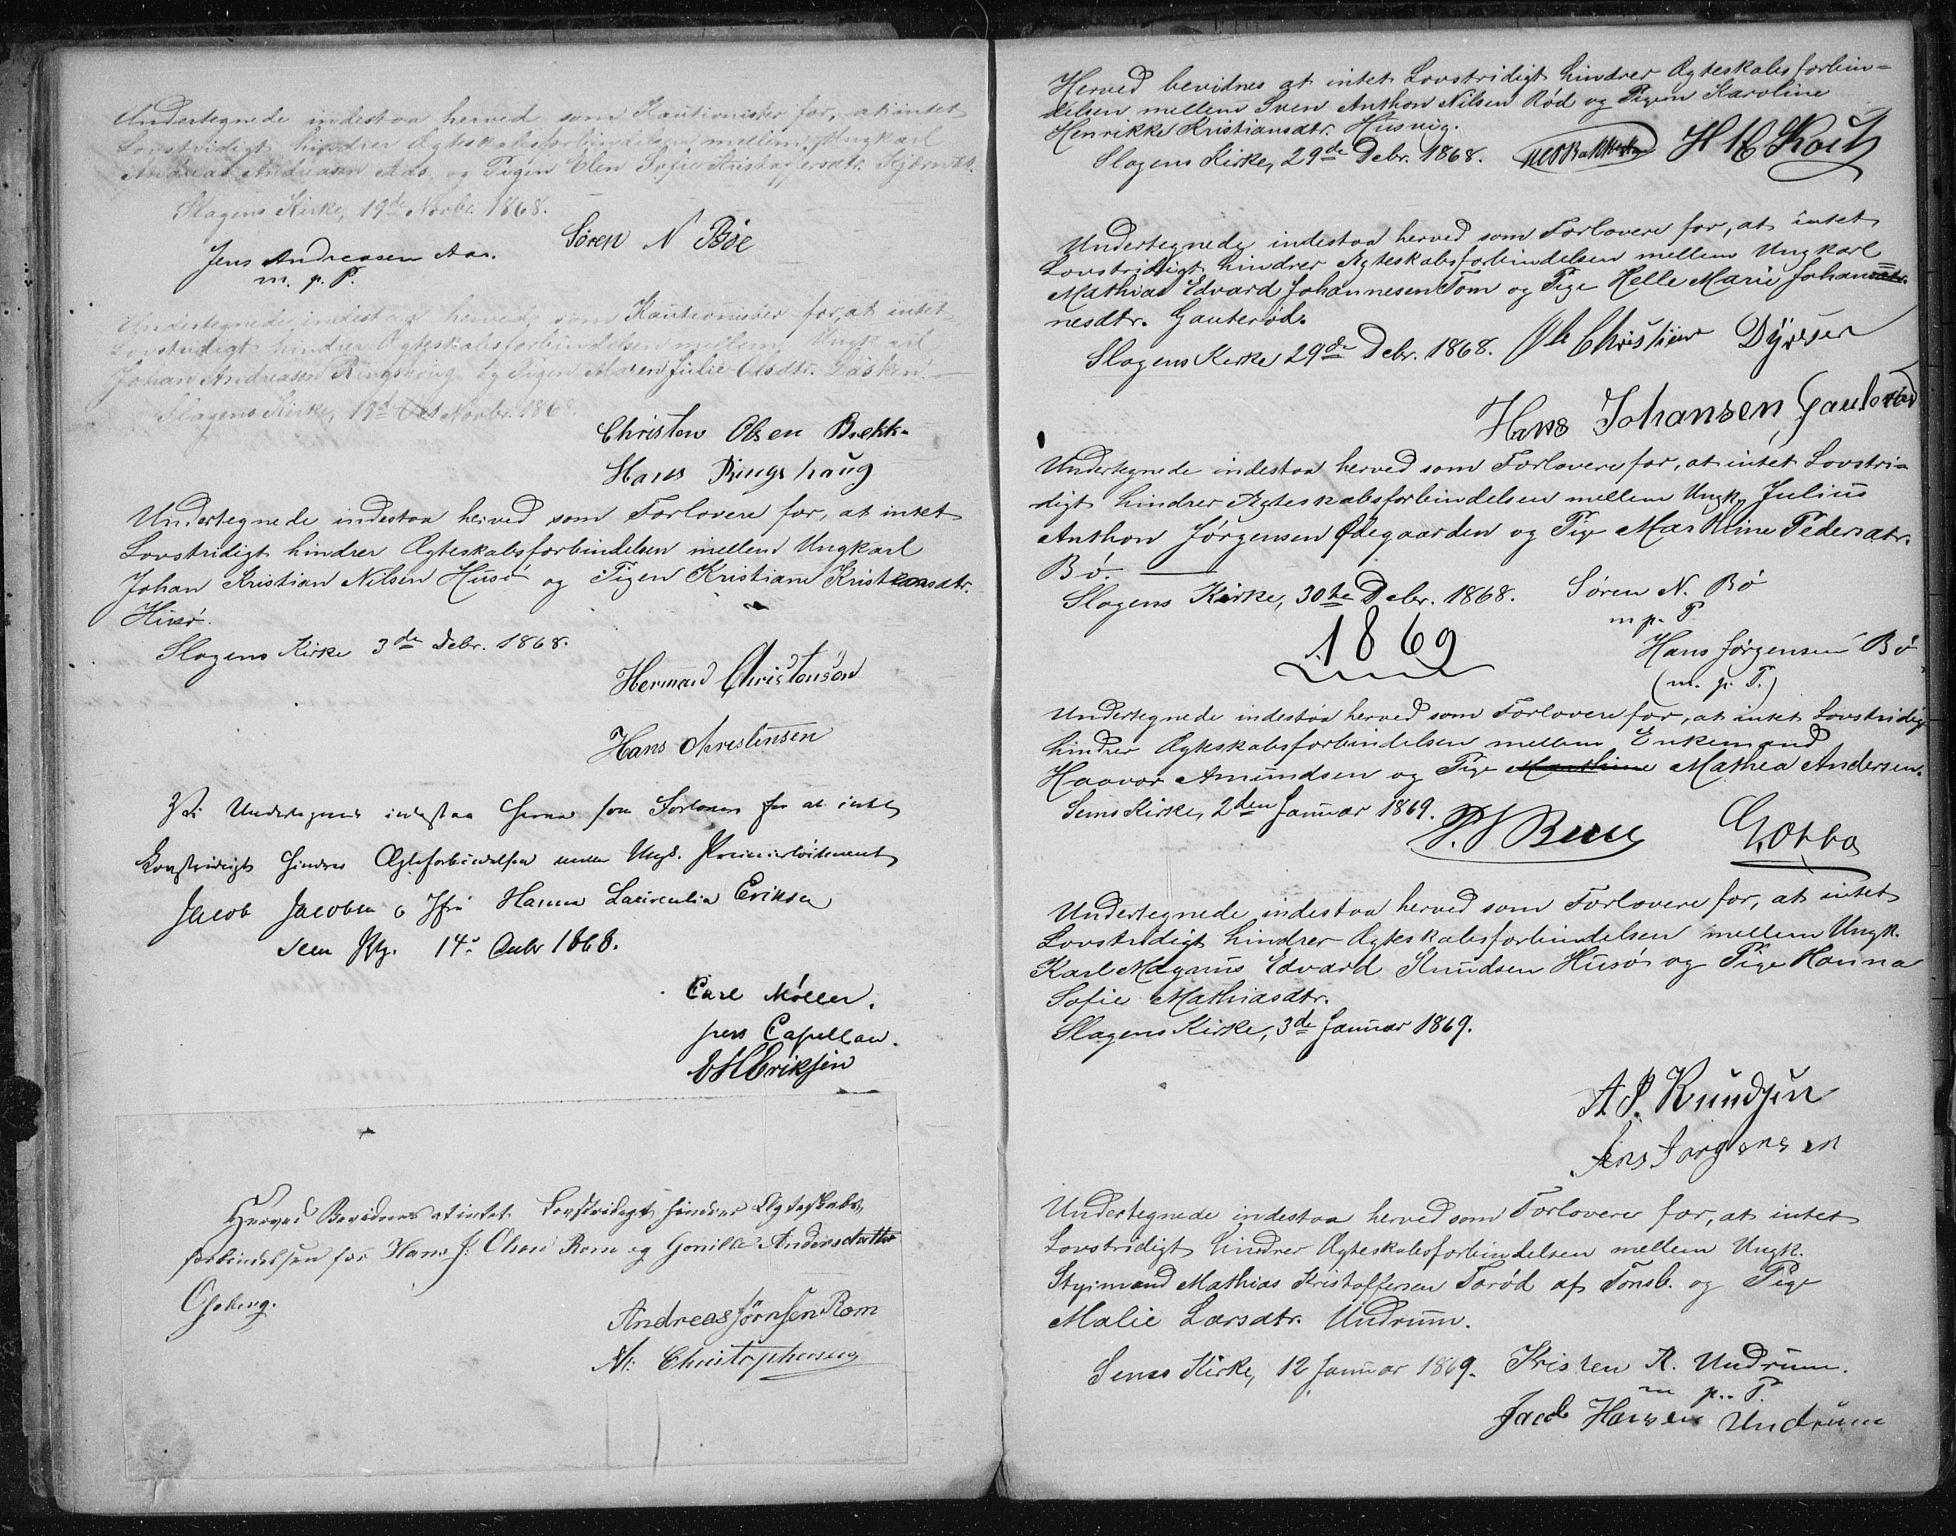 Undertegnede indestaa herved som Kautionister for, at intet
Lovstridigt hindrer Ægteskabsforbindelsen mellem Ungkarl
Andreas Andreasen Aas og Pigen Elen Sofie Kristoffersdtr.
Slagens Kirke, 19de Novbr. 1868.
Søren N Bøe
Jens Andreasen Aas.
m. p. P.
Undertegnede indestaa herved som Kautionister for, at intet
Lovstridigt hindrer Ægteskabsforbindelsen mellem Ungkarl
Johan Andreasen Ringshoug og Pigen Maren Julie Olsdtr.
Slagens Kirke, 19d Novbr. 1868.
Christen Olsen Bækk
Hans Ringshaug
Undertegnede indestaa herved som Forlovere for, at intet
Lovstridigt hindrer Ægteskabsforbindelsen mellem Ungkarl
Johan Kristian Nilsen Husø og Pigen Kristiane Kristensdtr.
Husø.
Slagens Kirke 3de Debr. 1868.
Herman Christensen
Hans Christensen
Vi Undertegnede indestaa herved som Forlovere for at intet
Lovstridigt hindrer Ægteforbindelsen mellem Ungk. Premierløitenent
Jacob Jacobsen o Jfr Hanna Laurentia Eriksen
Sem 14de 1868.
Carl Møller.
pers Capellan.
Eriksen
Herved Bevidnes at intet Lovstridigt hindrer Ægteskabs,,
forbindelsen for Hans J. Olsen Rom og Gonille Andersdatter
Oseberg.
Andreas Jørnsen Rom
N: Christophersen
Herved bevidnes at intet Lovstridigt hindrer Ægteskabsforbin-
delsen mellem Sven Anthon Nilsen Rød og Pigen Karoline
Henrikke Kristiansdtr. Husvig.
Slagens Kirke, 29de Debr. 1868.
Undertegnede indestaa herved som Forlovere for, at intet
Lovstridigt hindrer Ægteskabsforbindelsen mellem Ungkarl
Mathias Edvard Johannesen Tom og Pige Helle Marie Johan=
nesdtr. Gauterød.
Slagens Kirke 29de Debr. 1868. Ole Christian
Hans Johansen Gauterød
Undertegnede indestaa herved som Forlovere for, at intet Lovstri-
digt hindrer Ægteskabsforbindelsen mellem Ungk. Julius
Anthon Jørgensen Ødegaarden og Pige Marthine Pedersdtr.
Bø.
Slagens Kirke, 30te Debr. 1868. Søren N. Bø
m. p. P.
1869
Hans Jørgensen Bø
(m. p. P.)
Undertegnede indestaa herved som Forlovere for, at intet Lovstridigt
hindrer Ægteskabsforbindelsen mellem Enkemand
Haavor Amundsen og Pige Marthine Mathea Andersen.
Sems Kirke, 2den Januar 1869.
Undertegnede indestaa herved som Forlovere for, at intet
Lovstridigt hindrer Ægteskabsforbindelsen mellem Ungk.
Karl Magnus Edvard Knudsen Husø og Pige Hanna
Sofie Mathiasdtr.
Slagens Kirke, 3de Januar 1869.
A P. Knudsen
Jens Jørgensen
Undertegnede indestaa herved som Forlovere for, at intet
Lovstridigt hindrer Ægteskabsforbindelsen mellem Ungk.
Styrmand Mathias Kristoffersen Torød af Tønsb. og Pige
Malie Larsdtr. Undrum.
Sems Kirke, 12 Januar 1869. Kristen R. Undrum.
m p. P.
Jacob Hansen Undrum